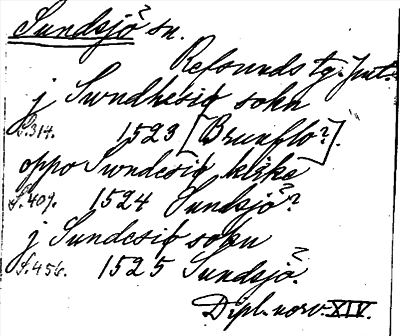 Sundsjö? sn.
Refsunds tg. Jmt.
j Swndhesiø sokn
S. 314. 1523 [Brunflo?].
oppo Swndesiø klike
S. 407. 1524 Sundsjö?
j Sundesiø sokn
S. 456. 1525 Sundsjö?
Dipl. norv. XIV.